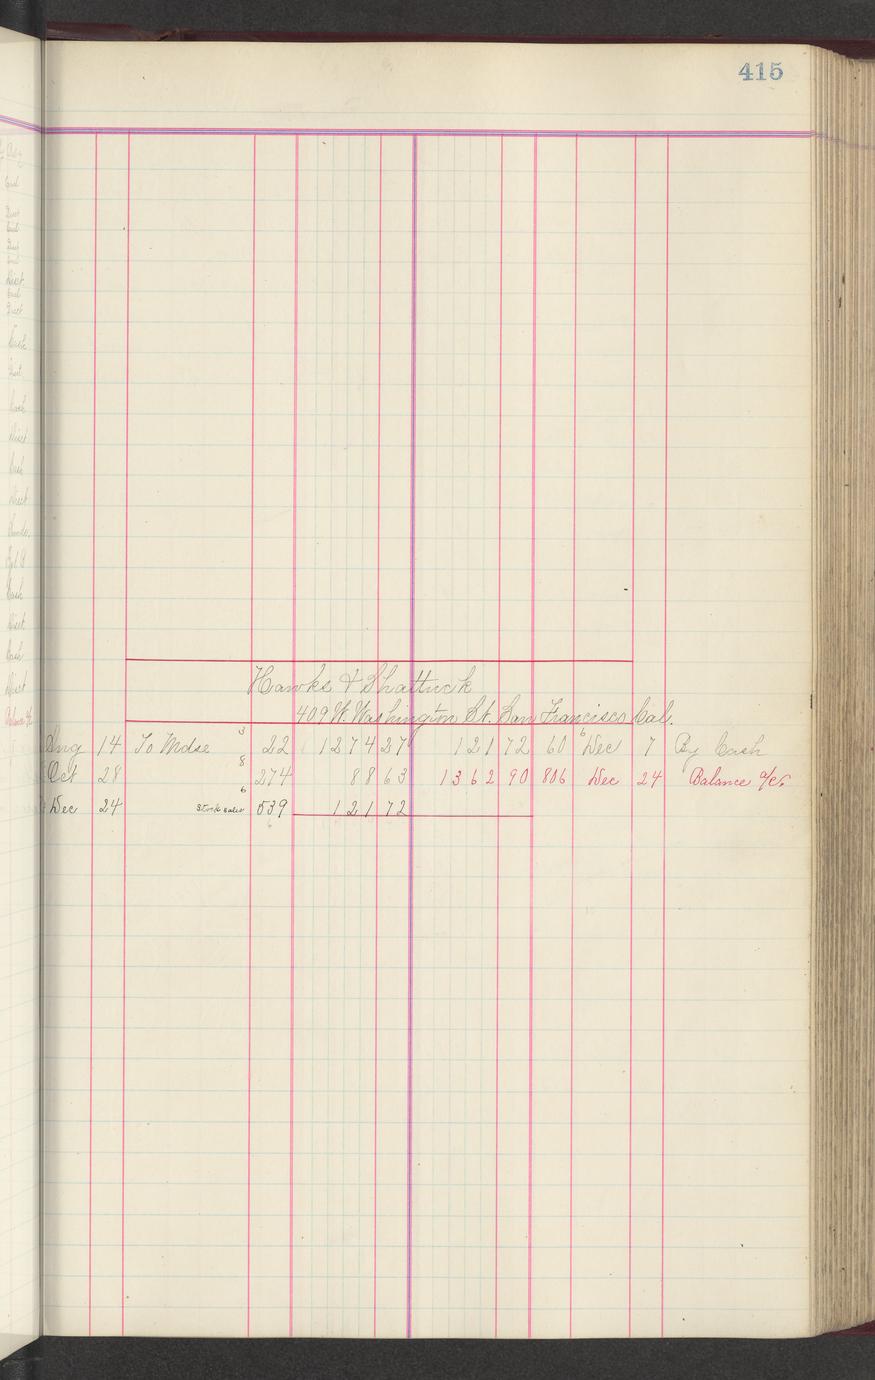 415
Hawks & Shattuck
409 W. Washington St. San Francisco Cal.
Aug 14 To Mdse 3 22 1274 27 121 72 60 6 Dec 7 By Cash
Oct 28 8 274 88 63 1362 90 806 Dec 24 Balance a/c
Dec 24 Stock sales 6 539 121 72
6